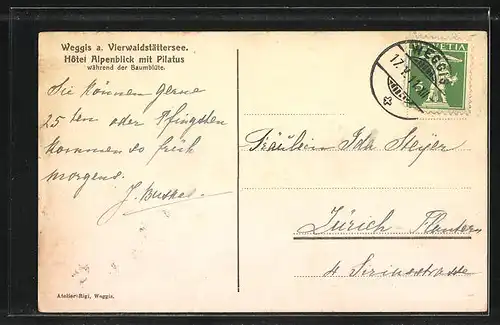 Weggis a. Vierwaldstättersee.
Hôtel Alpenblick mit Pilatus
während der Baumblüte.
Sie können gerne
25ten oder Pfingsten
kommen so früh
morgens.
Atelier-Rigi, Weggis.
WEGGIS
HELVETIA
Fräulein Ida Meyer
Zürich-Fluntern
4